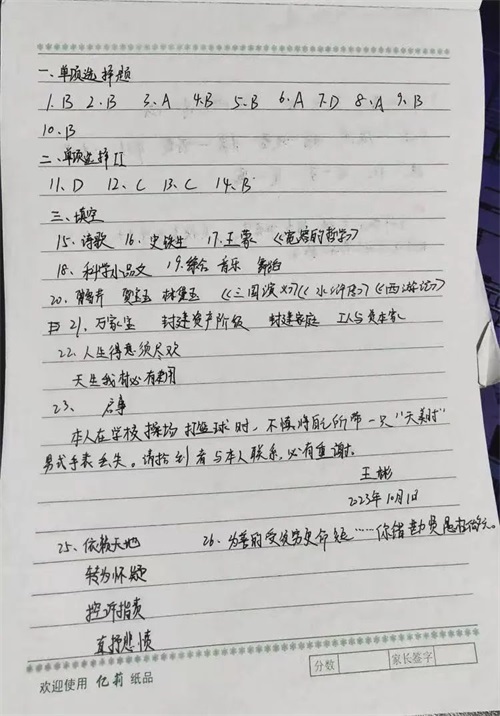 一、单项选择题
1.B 2.B 3.A 4.B 5.B 6.A 7.D 8.A 9.B
10.B
二、单项选择II
11、D 12、C 13、C 14、B
三、填空
15、诗歌 16、史铁生 17、王蒙 《宽容的哲学》
18、科学小品文 19、综合 音乐 舞蹈
20、曹雪芹 贾宝玉 林黛玉 《三国演义》《水浒传》《西游记》
21、万家宝 封建资产阶级 封建家庭 工人与资本家
22、人生得意须尽欢
天生我材必有用
23、启事
本人在学校操场打篮球时，不慎将自己所带一只"天美时"
男式手表丢失。请拾到者与本人联系，必有重谢。
王彬
2023年10月1日
25、依赖天地 26、为善的受贫穷更命短……你错勘贤愚枉做天
转为怀疑
控诉指责
直抒悲愤
分数 家长签字
欢迎使用 亿莉 纸品